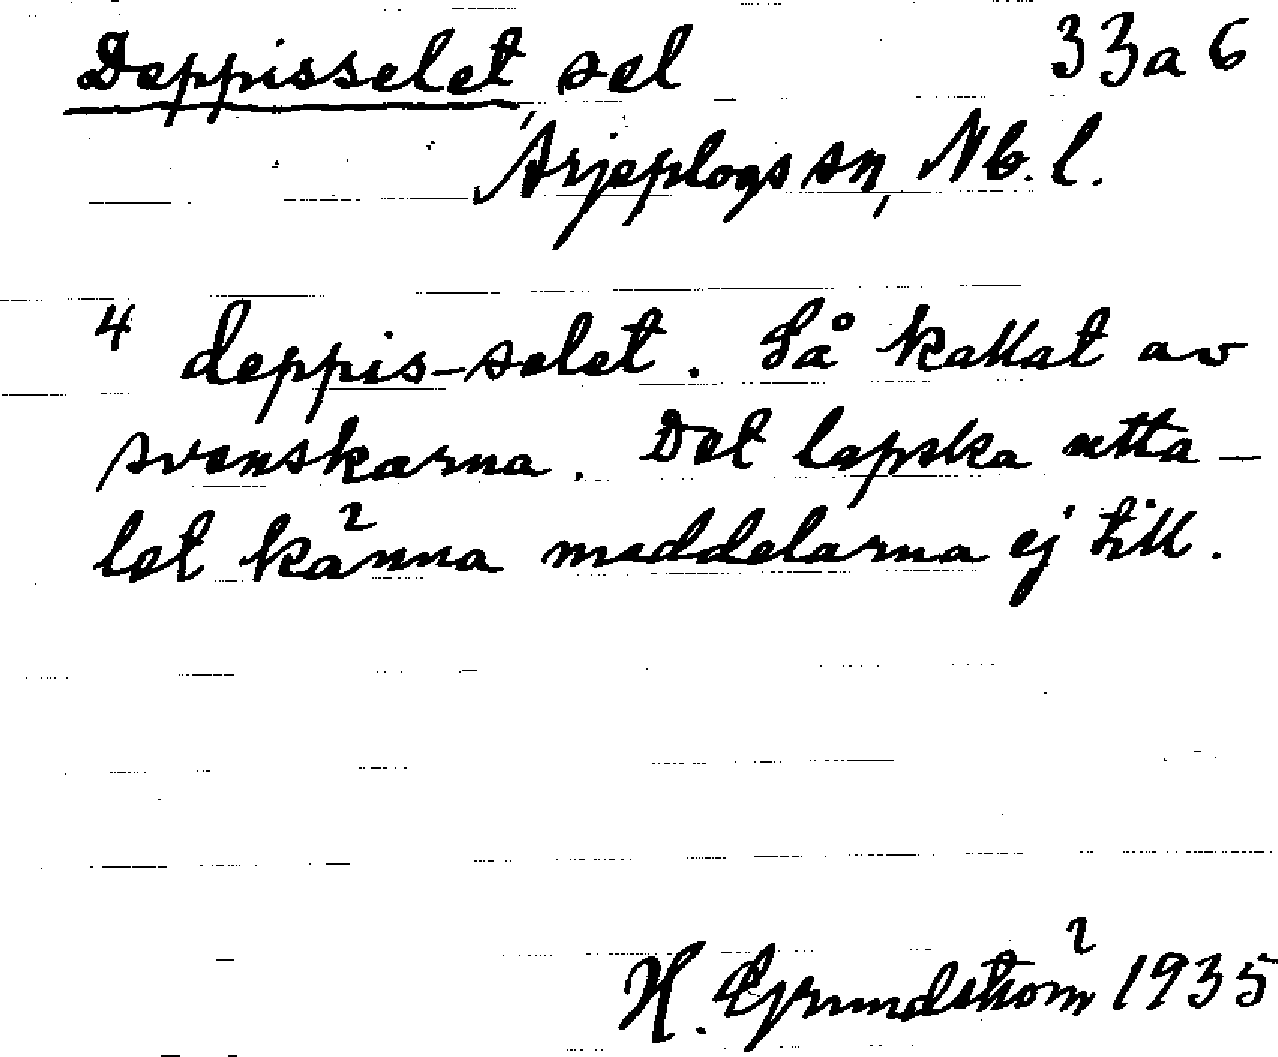 Deppisselet, sel 33a6
Arjeplogs sn, Nb. l.
4 deppis-selet. Så kallat av
svenskarna. Det lapska utta-
let känna meddelarna ej till.
H. Grundström 1935